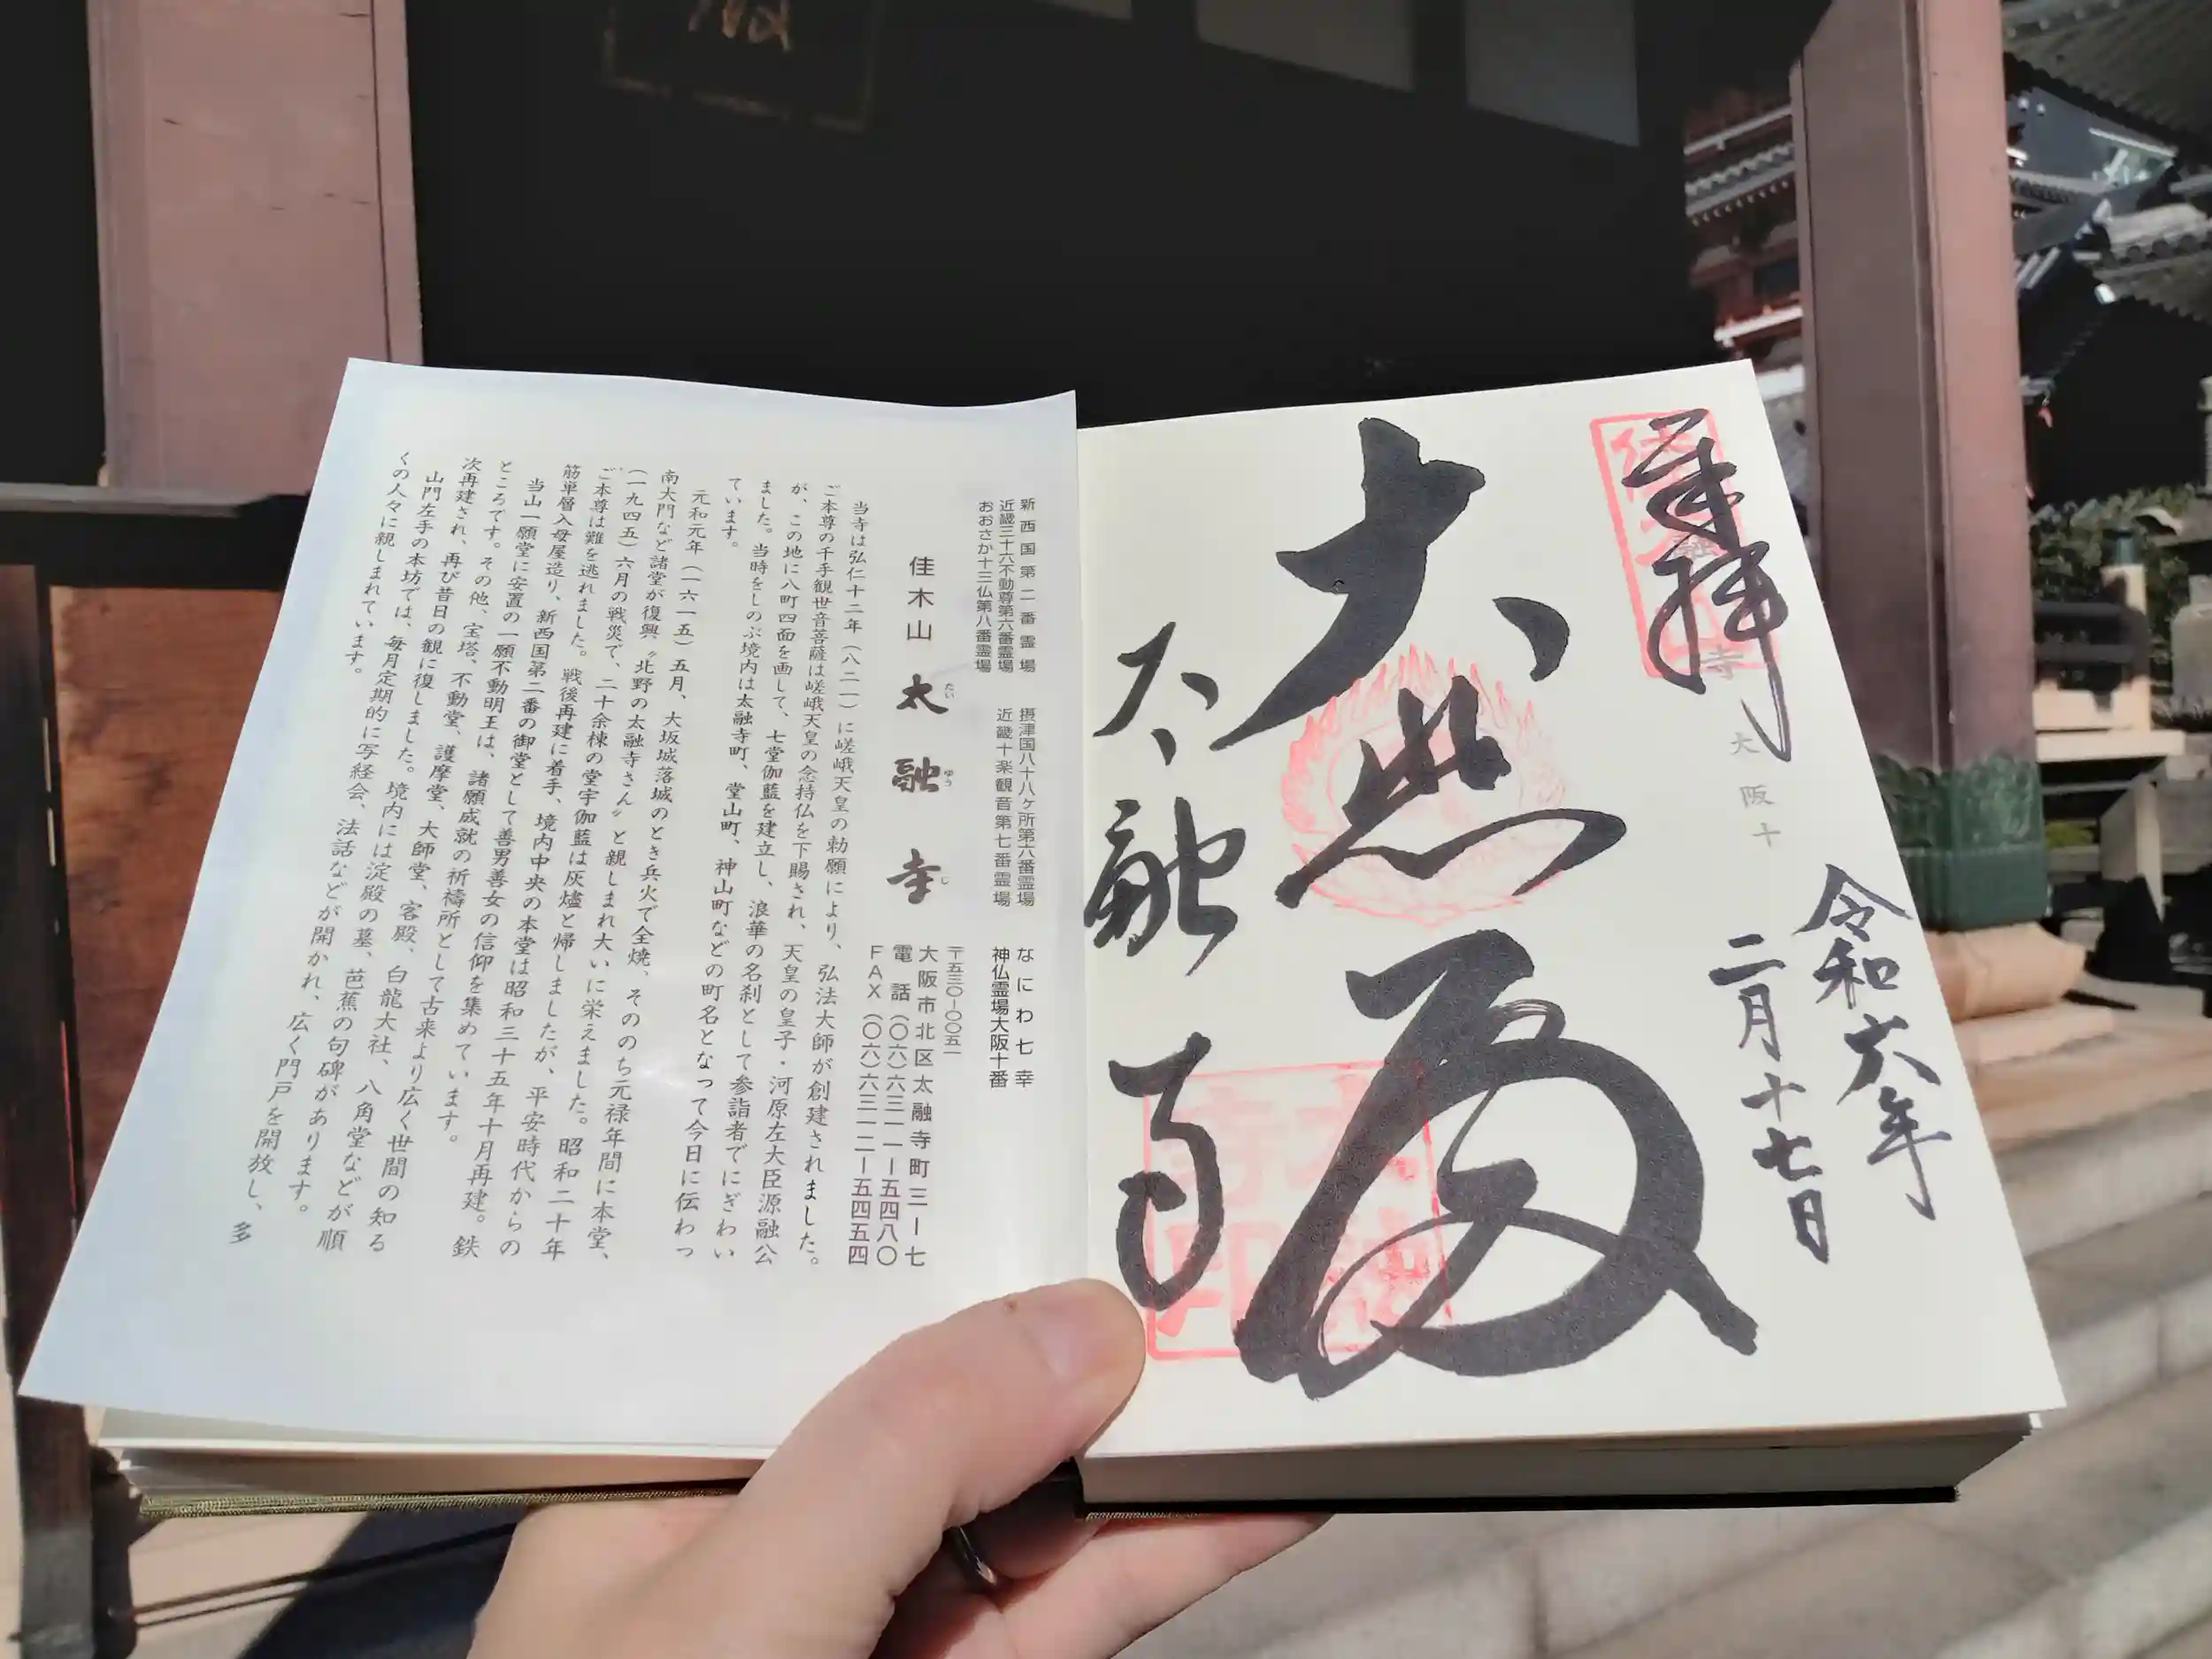 奉拝
大阪十
令和六年
二月十七日
大悲殿
太融寺
新西国第二番霊場
近畿三十六不動尊第六番霊場
おおさか十三仏第八番霊場
摂津国八十八ケ所第六番霊場
近畿十楽観音第七番霊場
なにわ七幸
神仏霊場大阪十番
佳木山 太融寺
たい ゆう じ
〒五三〇―〇〇五一
大阪市北区太融寺町三―七
電話(〇六)六三一一―五四八〇
FAX(〇六)六三一二―五四五四
当寺は弘仁十二年(八二一)に嵯峨天皇の勅願により、弘法大師が創建されました。
ご本尊の千手観世音菩薩は嵯峨天皇の念持仏を下賜され、天皇の皇子・河原左大臣源融公
が、この地に八町四面を画して、七堂伽藍を建立し、浪華の名刹として参詣者でにぎわい
ました。当時をしのぶ境内は太融寺町、堂山町、神山町などの町名となって今日に伝わっ
ています。
元和元年(一六一五)五月、大坂城落城のとき兵火で全焼、そののち元禄年間に本堂、
南大門など諸堂が復興〝北野の太融寺さん〟と親しまれ大いに栄えました。昭和二十年
(一九四五)六月の戦災で、二十余棟の堂宇伽藍は灰燼と帰しましたが、平安時代からの
ご本尊は難を逃れました。戦後再建に着手、境内中央の本堂は昭和三十五年十月再建。鉄
筋単層入母屋造り、新西国第二番の御堂として善男善女の信仰を集めています。
当山一願堂に安置の一願不動明王は、諸願成就の祈禱所として古来より広く世間の知る
ところです。その他、宝塔、不動堂、護摩堂、大師堂、客殿、白龍大社、八角堂などが順
次再建され、再び昔日の観に復しました。境内には淀殿の墓、芭蕉の句碑があります。
山門左手の本坊では、毎月定期的に写経会、法話などが開かれ、広く門戸を開放し、多
くの人々に親しまれています。